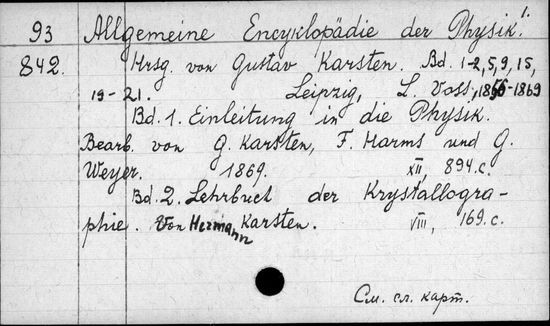 1.
93 Allgemeine Encyklopädie der Physik.
842. Hrsg. von Gustav Karsten. Bd. 1-2,5,9,15,
19-21. Leipzig, L. Voss, 1856-1869
Bd. 1. Einleitung in die Physik.
Bearb. von G. Karsten, F. Harms und G.
Weyer. 1869. XII, 894.c.
Bd. 2. Lehrbuch der Krystallogra-
phie. Von Hermann Karsten. VIII, 169.c.
См. сл. карт.